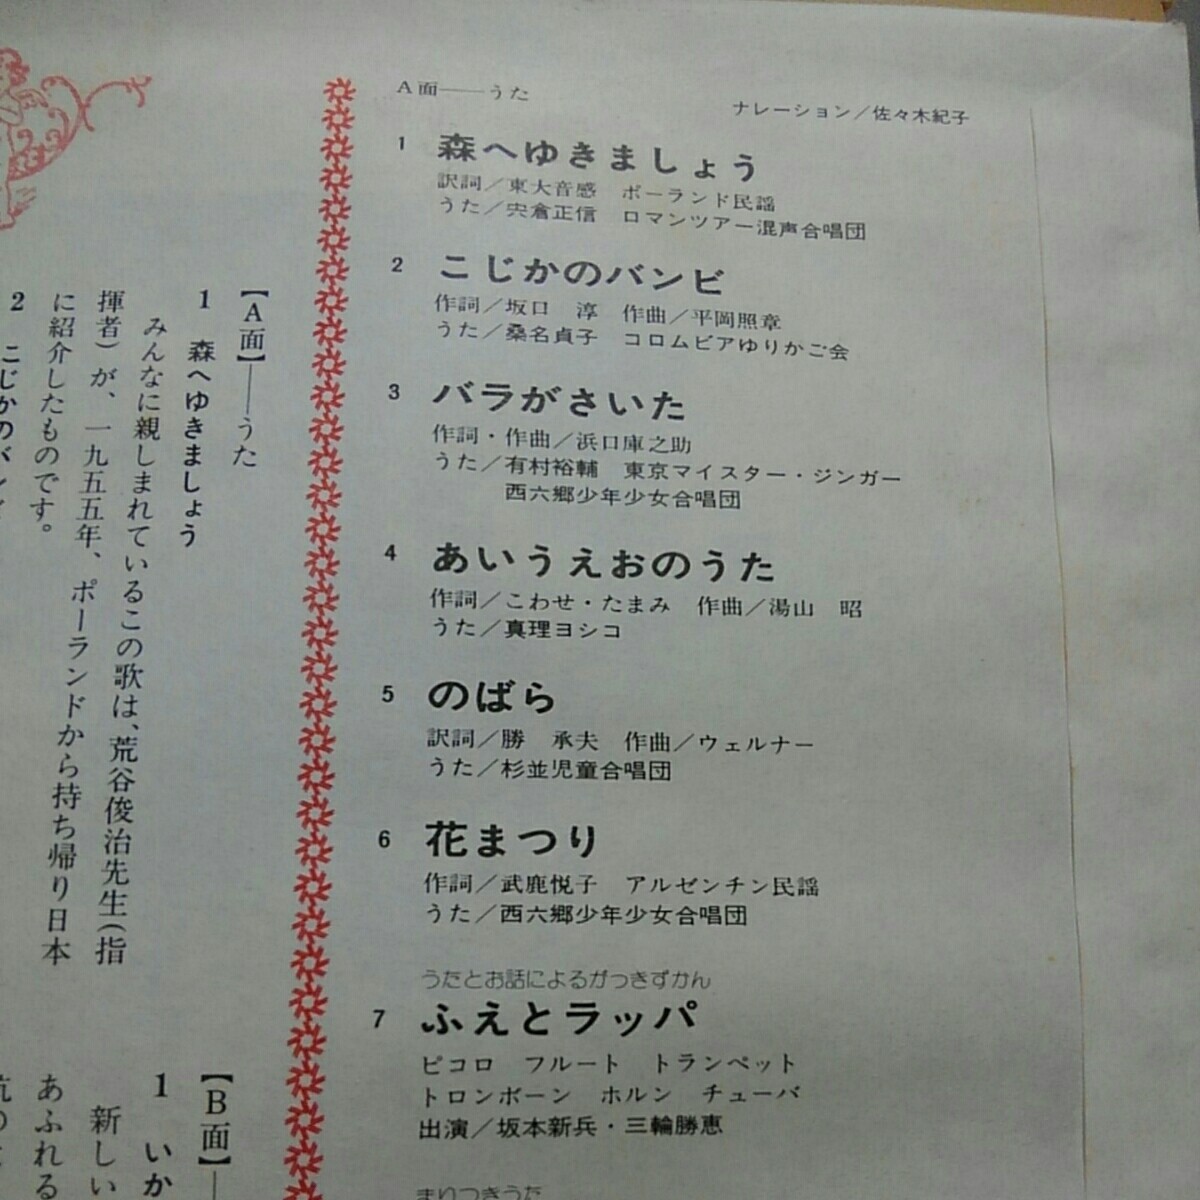 A面──うた
ナレーション／佐々木紀子
1 森へゆきましょう
訳詞／東大音感 ポーランド民謡
うた／宍倉正信 ロマンツアー混声合唱団
2 こじかのバンビ
作詞／坂口 淳 作曲／平岡照章
うた／桑名貞子 コロムビアゆりかご会
3 バラがさいた
作詞・作曲／浜口庫之助
うた／有村裕輔 東京マイスター・ジンガー
西六郷少年少女合唱団
4 あいうえおのうた
作詞／こわせ・たまみ 作曲／湯山 昭
うた／真理ヨシコ
5 のばら
訳詞／勝 承夫 作曲／ウェルナー
うた／杉並児童合唱団
6 花まつり
作詞／武鹿悦子 アルゼンチン民謡
うた／西六郷少年少女合唱団
うたとお話によるがっきずかん
7 ふえとラッパ
ピコロ フルート トランペット
トロンボーン ホルン チューバ
出演／坂本新兵・三輪勝恵
まりつきうた
【A面】──うた
1 森へゆきましょう
みんなに親しまれているこの歌は、荒谷俊治先生(指
揮者)が、一九五五年、ポーランドから持ち帰り日本
に紹介したものです。
2 こじかのバンビ
【B面】─
1 いか
新しい
あふれる